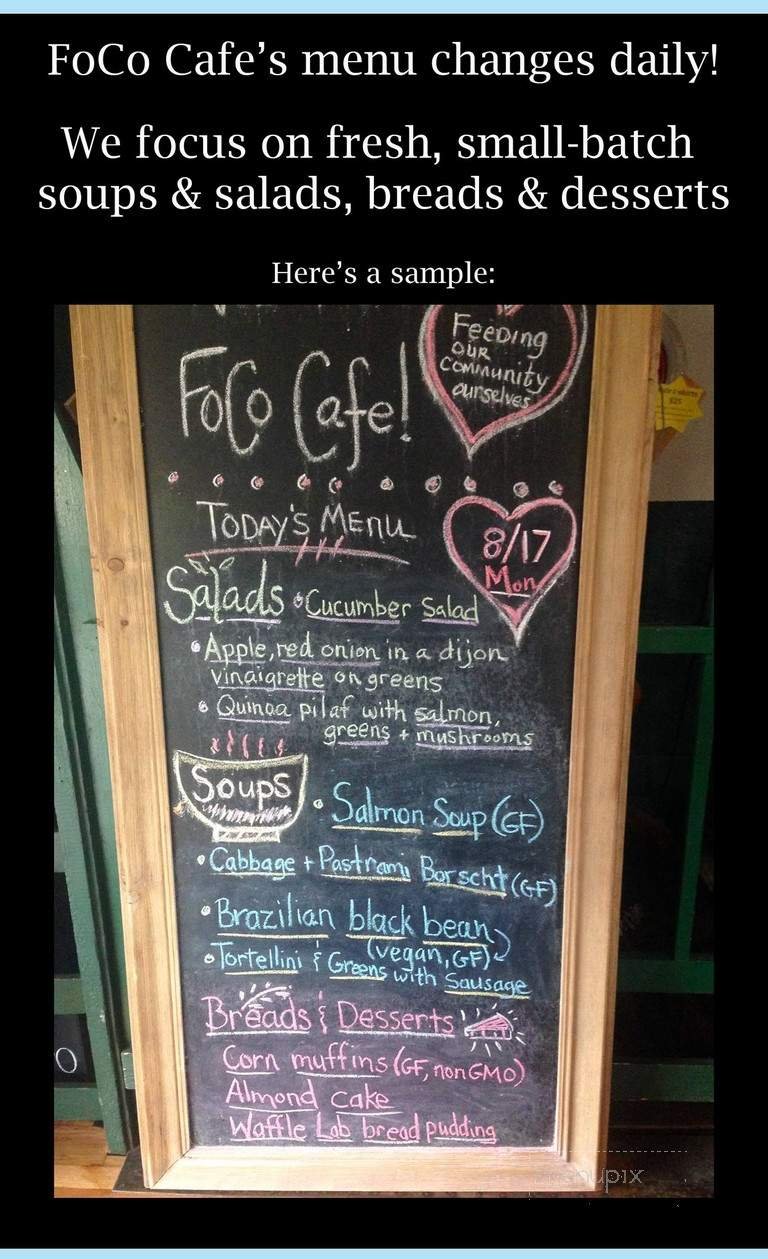 FoCo Cafe's menu changes daily!
We focus on fresh, small-batch
soups & salads, breads & desserts
Here's a sample:
Feeding
our
Community
ourselves
FoCo Cafe!
Today's Menu
8/17
Mon
Salads • Cucumber Salad
• Apple, red onion in a dijon
vinaigrette on greens
• Quinoa pilaf with salmon,
greens + mushrooms
Soups
• Salmon Soup (GF)
• Cabbage + Pastrami Borscht (GF)
• Brazilian black bean
(vegan, GF)
• Tortellini & Greens with Sausage
Breads & Desserts
Corn muffins (GF, nonGMO)
Almond cake
Waffle Lab bread pudding
menupix
$25